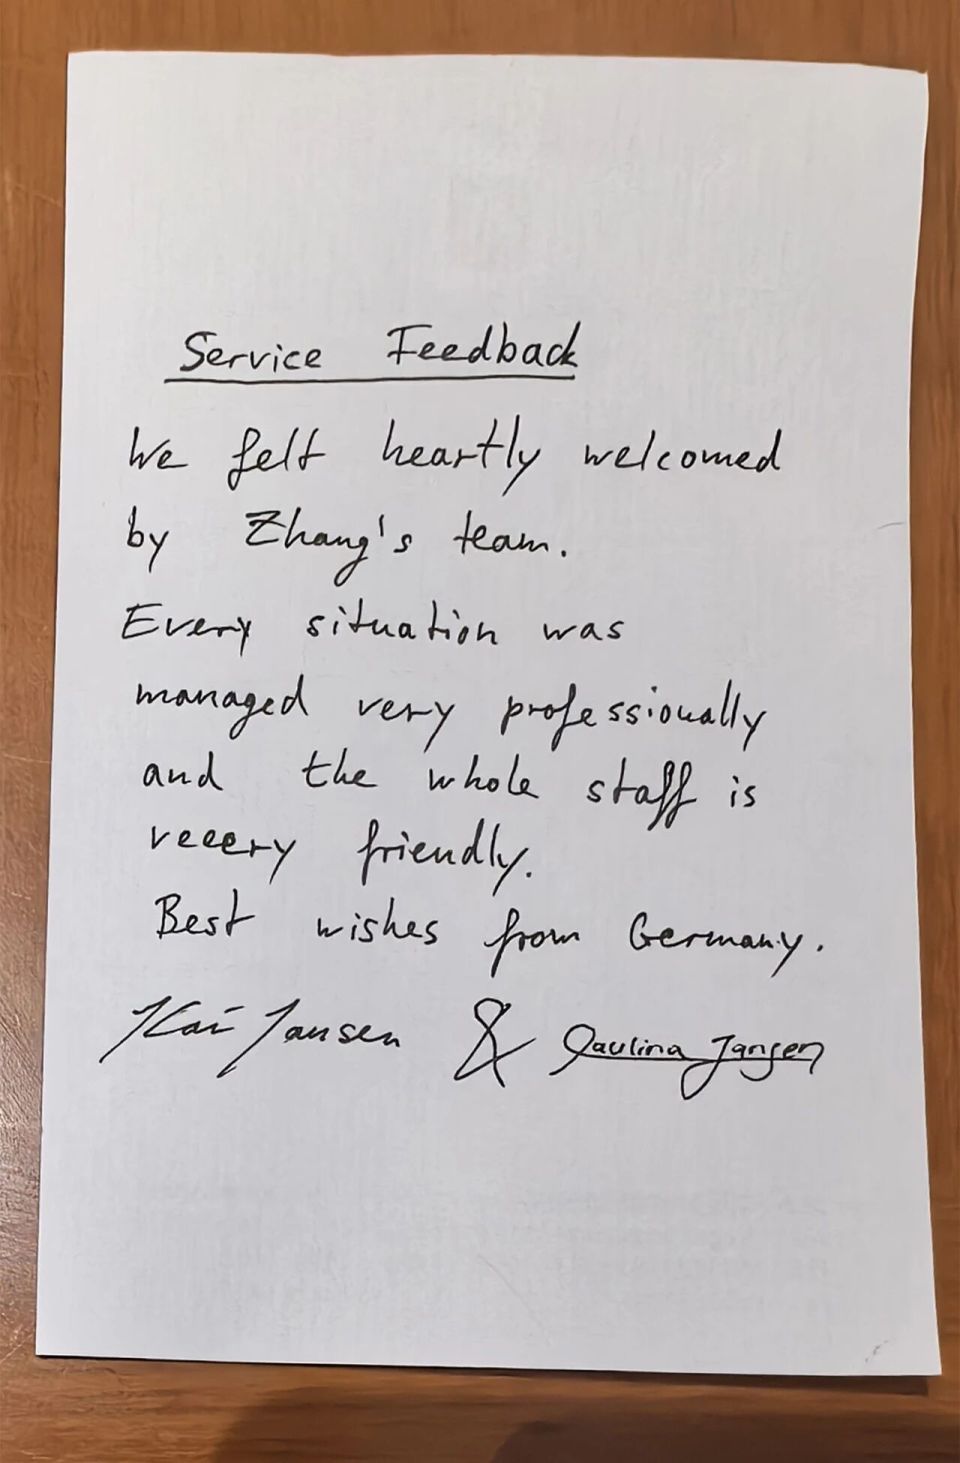 Service Feedback
We felt heartly welcomed
by Zhang's team.
Every situation was
managed very professionally
and the whole staff is
veeery friendly.
Best wishes from Germany.
Kai Jansen & Paulina Jansen